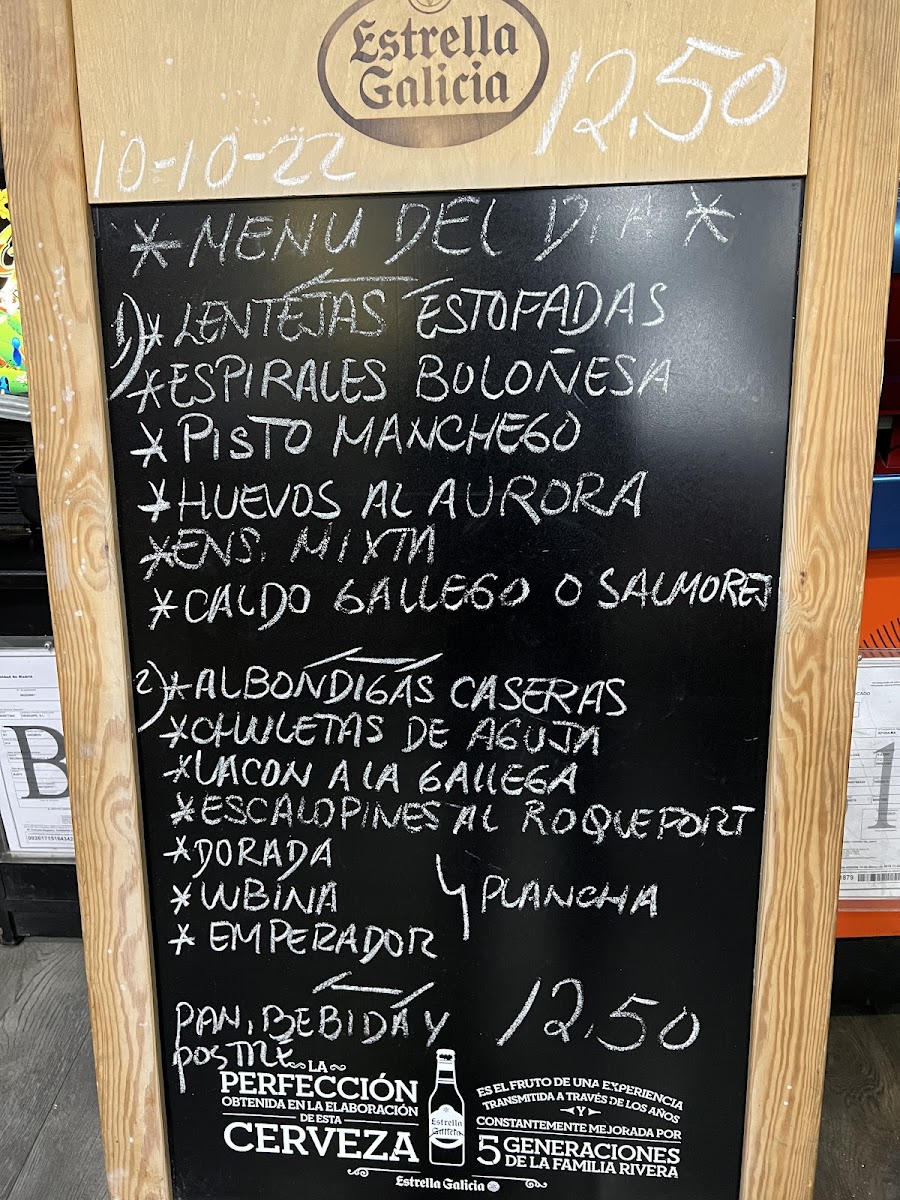 Estrella
Galicia
Estrella Galicia
12.50
10-10-22
* MENU DEL DIA *
1) * LENTEJAS ESTOFADAS
* ESPIRALES BOLOÑESA
* PISTO MANCHEGO
* HUEVOS AL AURORA
* ENS. MIXTA
* CALDO GALLEGO O SALMOREJ
2) * ALBONDIGAS CASERAS
* CHULETAS DE AGUJA
* LACON A LA GALLEGA
* ESCALOPINES AL ROQUEFORT
* DORADA
* UBINA
* EMPERADOR
PLANCHA
PAN, BEBIDA Y 12,50
POSTRE
LA
PERFECCIÓN
OBTENIDA EN LA ELABORACIÓN
DE ESTA
CERVEZA
Estrella
Galicia
ES EL FRUTO DE UNA EXPERIENCIA
TRANSMITIDA A TRAVÉS DE LOS AÑOS
Y
CONSTANTEMENTE MEJORADA POR
5 GENERACIONES
DE LA FAMILIA RIVERA
Estrella Galicia
B
1